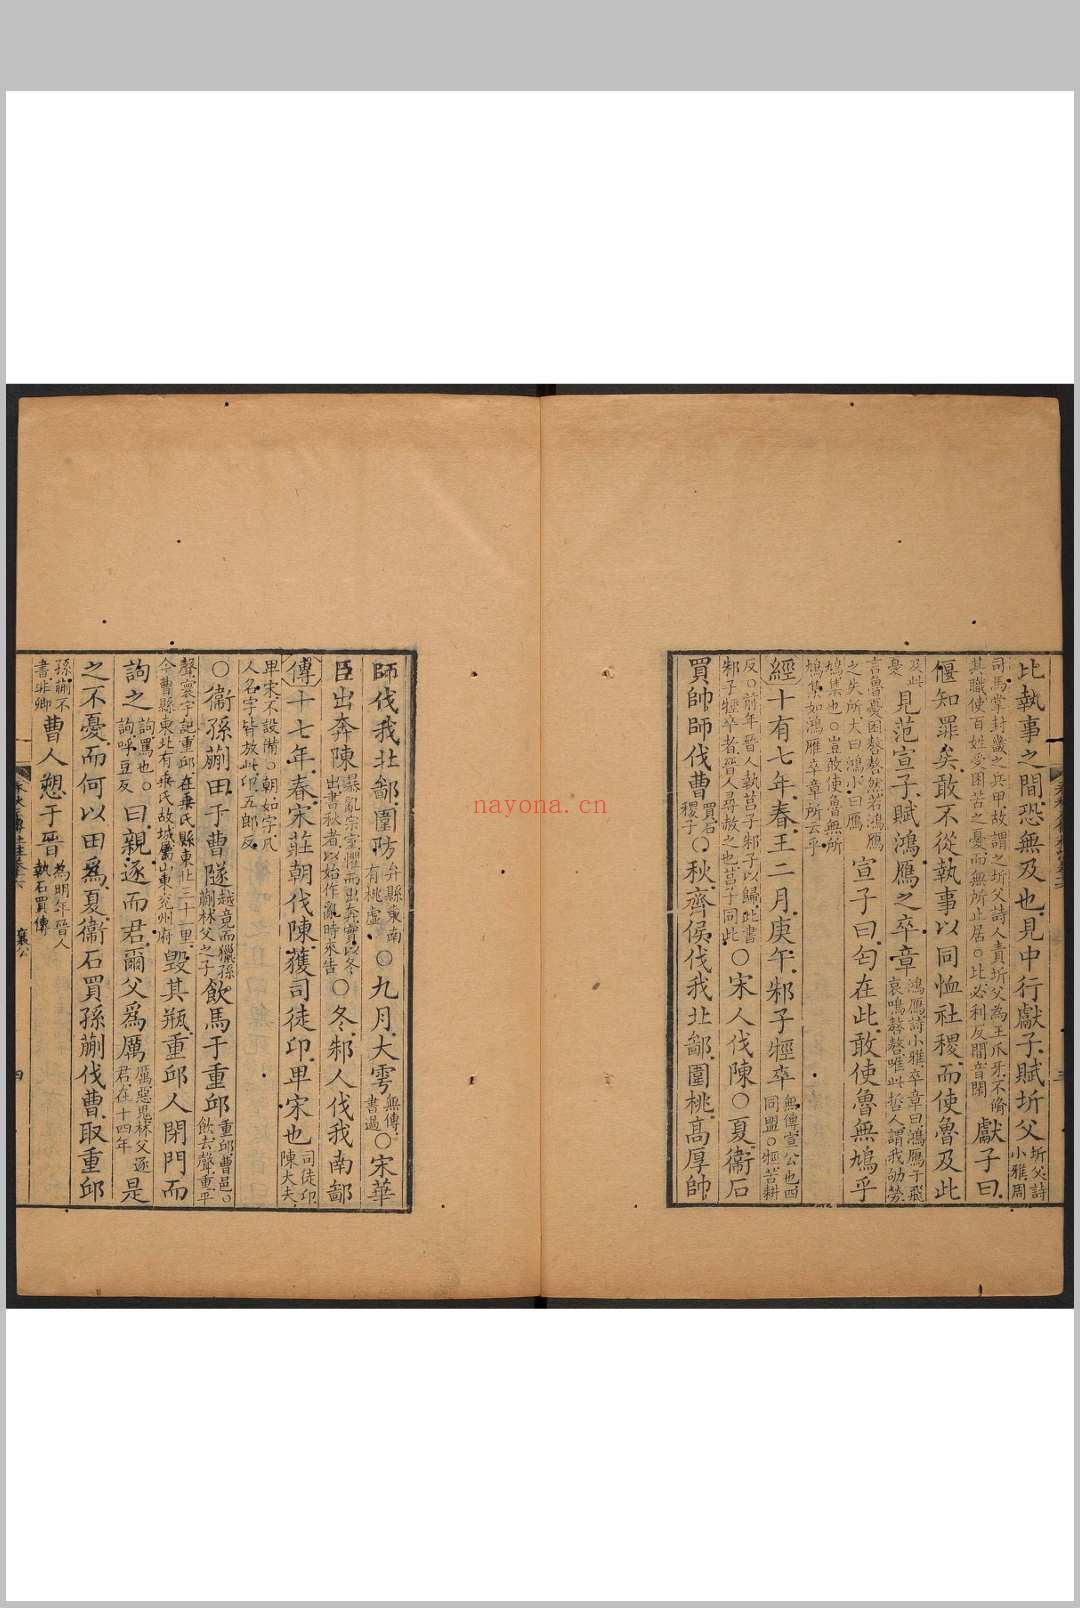 比執事之間恐無及也見中行獻子賦圻父圻父詩小雅周
司馬掌封畿之兵甲故謂之圻父詩人責圻父為王爪牙不脩其職使百姓受困苦之憂而無所止居○比必利反間音閑獻子曰
偃知罪矣敢不從執事以同恤社稷而使魯及此
及此憂見范宣子賦鴻鴈之卒章鴻鴈詩小雅卒章曰鴻鴈于飛哀鳴嗸嗸唯此哲人謂我劬勞
言魯憂困嗸嗸然若鴻鴈之失所大曰鴻小曰鴈宣子曰匄在此敢使魯無鳩乎
鳩集也○豈敢使魯無所鳩集如鴻雁卒章所云乎
經十有七年春王二月庚午邾子牼卒無傳宣公也四同盟○牼苦耕
反○前年晉人執莒子邾子以歸此書邾子牼卒者晉人尋赦之也莒子同此○宋人伐陳○夏衞石
買帥師伐曹買石稷子○秋齊侯伐我北鄙圍桃高厚帥
師伐我北鄙圍防弁縣東南有桃虛○九月大雩無傳書過○宋華
臣出奔陳暴亂宗室懼而出奔實以冬出書秋者以始作亂時來告○冬邾人伐我南鄙
傳十七年春宋莊朝伐陳獲司徒卬卑宋也司徒卬陳大夫
卑宋不設備○朝如字凡人名字皆放此卬五郎反
○衞孫蒯田于曹隧越竟而獵孫蒯林父之子飲馬于重邱重邱曹邑○飲去聲重平
聲寰宇記重邱在乗氏縣東北三十一里今曹縣東北有乗氏故城屬山東兖州府毀其瓶重邱人閉門而
詢之詢罵也○詢呼豆反曰親逐而君爾父爲厲厲惡鬼林父逐君在十四年是
之不憂而何以田爲夏衞石買孫蒯伐曹取重邱
孫蒯不書非卿曹人愬于晉為明年晉人執石買傳
襄公
四
nayona.cn